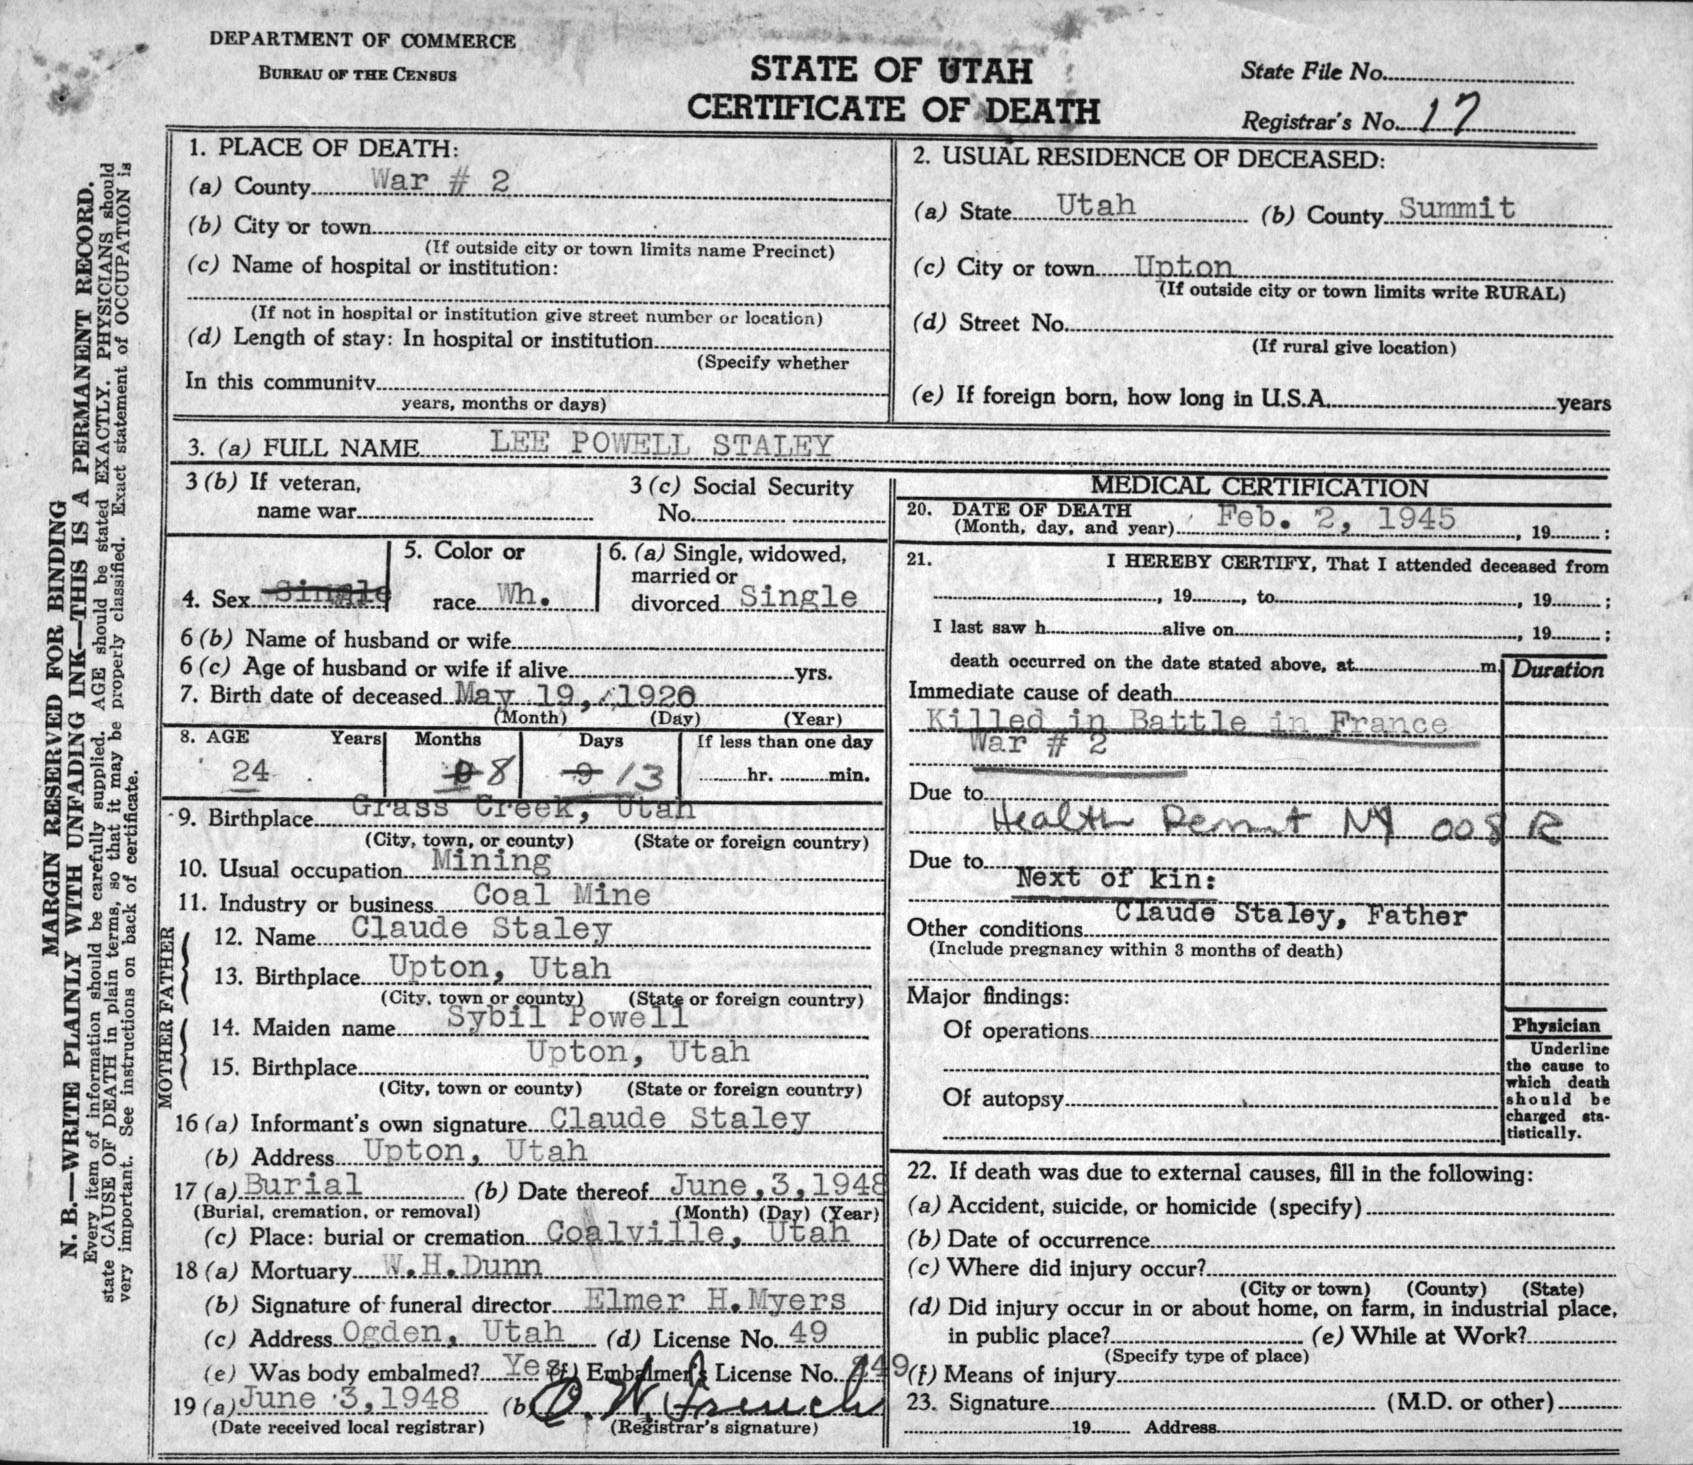 DEPARTMENT OF COMMERCE
BUREAU OF THE CENSUS
STATE OF UTAH
CERTIFICATE OF DEATH
State File No.
Registrar's No. 17
MARGIN RESERVED FOR BINDING
N. B.—WRITE PLAINLY WITH UNFADING INK—THIS IS A PERMANENT RECORD.
Every item of information should be carefully supplied. AGE should be stated EXACTLY. PHYSICIANS should
state CAUSE OF DEATH in plain terms, so that it may be properly classified. Exact statement of OCCUPATION is
very important. See instructions on back of certificate.
1. PLACE OF DEATH:
(a) County War # 2
(b) City or town
(If outside city or town limits name Precinct)
(c) Name of hospital or institution:
(If not in hospital or institution give street number or location)
(d) Length of stay: In hospital or institution
(Specify whether
In this community
years, months or days)
2. USUAL RESIDENCE OF DECEASED:
(a) State Utah (b) County Summit
(c) City or town Upton
(If outside city or town limits write RURAL)
(d) Street No.
(If rural give location)
(e) If foreign born, how long in U.S.A. years
3. (a) FULL NAME LEE POWELL STALEY
3 (b) If veteran,
name war
3 (c) Social Security
No.
4. Sex Single
5. Color or
race Wh.
6. (a) Single, widowed,
married or
divorced Single
6 (b) Name of husband or wife
6 (c) Age of husband or wife if alive yrs.
7. Birth date of deceased May 19, 1920
(Month) (Day) (Year)
8. AGE Years Months Days If less than one day
24 8 9 13 hr. min.
9. Birthplace Grass Creek, Utah
(City, town, or county) (State or foreign country)
10. Usual occupation Mining
11. Industry or business Coal Mine
FATHER
12. Name Claude Staley
13. Birthplace Upton, Utah
(City, town or county) (State or foreign country)
MOTHER
14. Maiden name Sybil Powell
15. Birthplace Upton, Utah
(City, town or county) (State or foreign country)
16 (a) Informant's own signature Claude Staley
(b) Address Upton, Utah
17 (a) Burial (b) Date thereof June, 3, 1948
(Burial, cremation, or removal) (Month) (Day) (Year)
(c) Place: burial or cremation Coalville, Utah
18 (a) Mortuary W.H.Dunn
(b) Signature of funeral director Elmer H.Myers
(c) Address Ogden, Utah (d) License No. 49
(e) Was body embalmed? Yes (f) Embalmer's License No. 49
19 (a) June 3, 1948 (b) O. W. French
(Date received local registrar) (Registrar's signature)
MEDICAL CERTIFICATION
20. DATE OF DEATH
(Month, day, and year) Feb. 2, 1945, 19 ;
21. I HEREBY CERTIFY, That I attended deceased from
, 19 , to , 19 ;
I last saw h alive on , 19 ;
death occurred on the date stated above, at m.
Duration
Immediate cause of death
Killed in Battle in France
War # 2
Due to
Health Permit NY 008 R
Due to
Next of kin:
Claude Staley, Father
Other conditions
(Include pregnancy within 3 months of death)
Major findings:
Of operations
Of autopsy
Physician
Underline
the cause to
which death
should be
charged sta-
tistically.
22. If death was due to external causes, fill in the following:
(a) Accident, suicide, or homicide (specify)
(b) Date of occurrence
(c) Where did injury occur?
(City or town) (County) (State)
(d) Did injury occur in or about home, on farm, in industrial place,
in public place? (e) While at Work?
(Specify type of place)
(f) Means of injury
23. Signature (M.D. or other)
19 Address